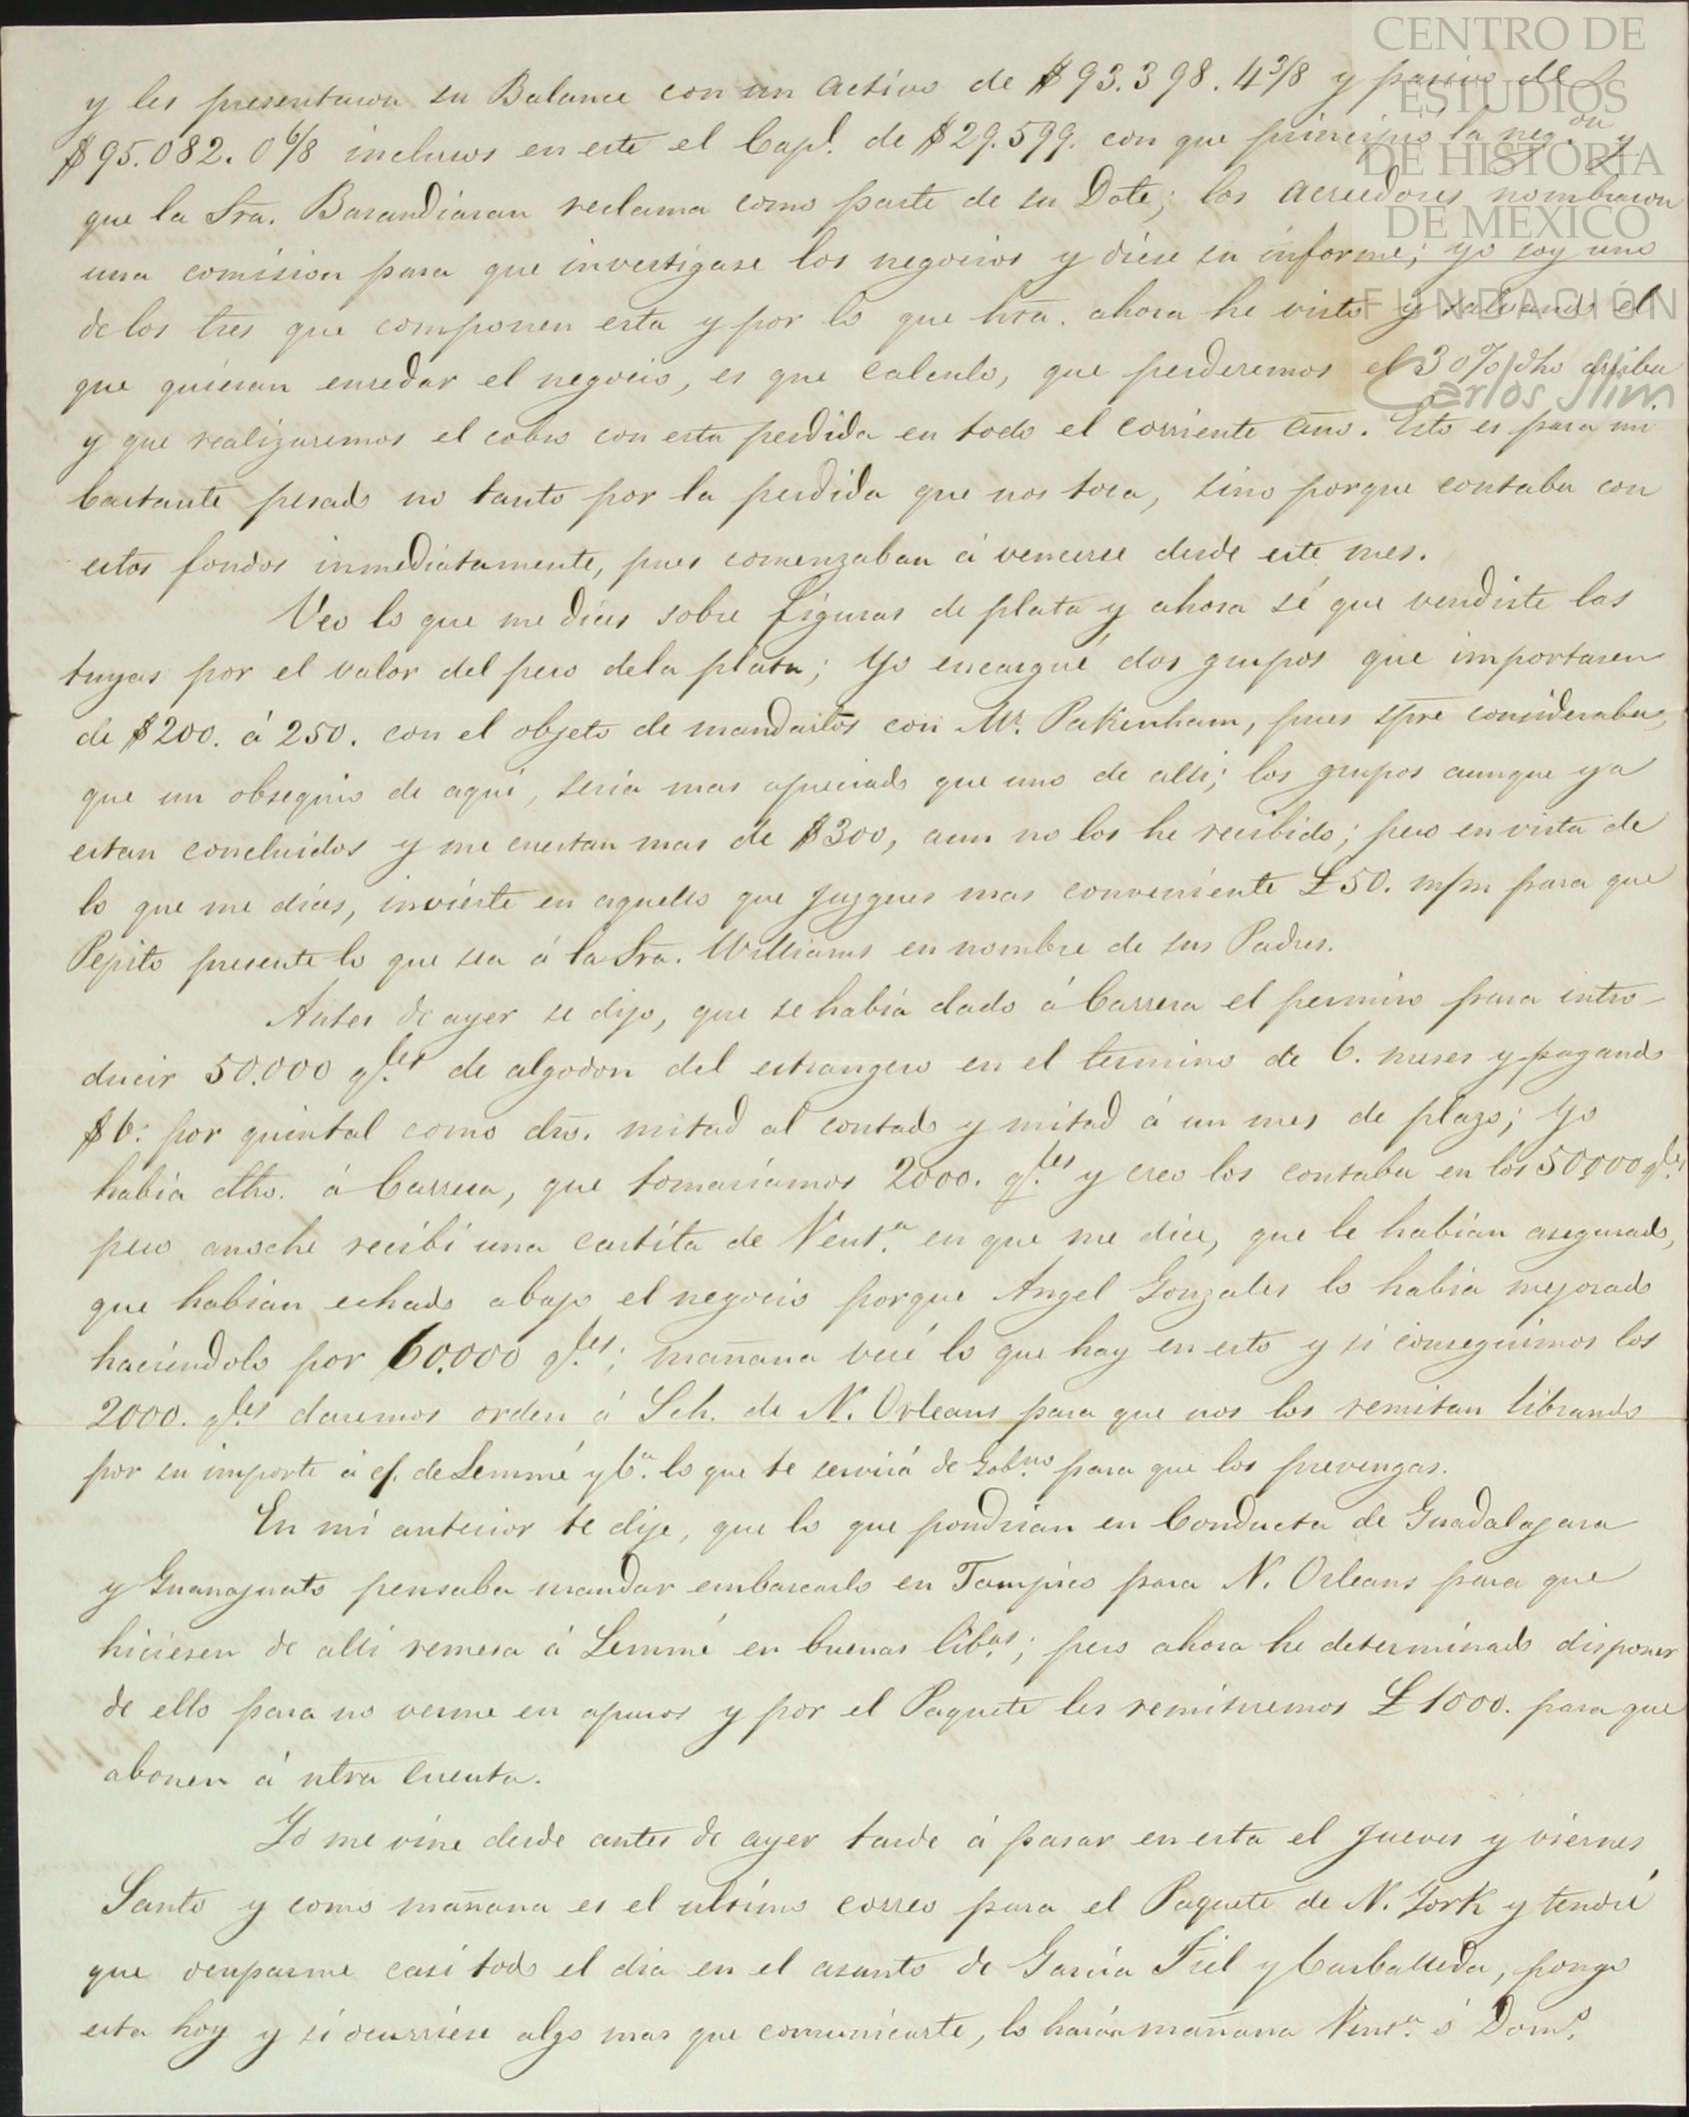 CENTRO DE
ESTUDIOS
DE HISTORIA
DE MEXICO
FUNDACIÓN
Carlos Slim
y les presentaron su Balance con un activo de $93.398.4 3/8 y pasivo de
$95.082.0 6/8 inclusos en este el Capl. de $29.599. con que principió la negon. y
que la Sra. Barandiaran reclama como parte de su Dote; los acreedores nombraron
una comision para que investigase los negocios y diese su informe; yo soy uno
de los tres que componen esta y por lo que hta. ahora he visto y salvando el
que quieran enredar el negocio, es que calculo, que perderemos el 30% dho arriba
y que realizaremos el cobro con esta perdida en todo el corriente año. Esto es para mi
bastante pesado no tanto por la perdida que nos toca, sino porque contaba con
estos fondos inmediatamente, pues comenzaban á vencerse desde este mes.
Veo lo que me dices sobre figuras de plata y ahora sé que vendiste las
tuyas por el valor del peso dela plata; Yo encargué dos grupos que importasen
de $200. á 250. con el objeto de mandarlos con Mr. Pakenham, pues spre consideraba,
que un obsequio de aqui, seria mas apreciado que uno de alli; los grupos aunque ya
estan concluidos y me cuestan mas de $300, aun no los he recibido; pero en vista de
lo que me dices, invierte en aquello que juzgues mas conveniente £50. m/m para que
Pepito presente lo que sea á la Sra. Williams en nombre de sus Padres.
Antes de ayer se dijo, que se habia dado á Carrera el permiso para intro-
ducir 50.000 qles. de algodon del estrangero en el termino de 6. meses y pagando
$6. por quintal como dro. mitad al contado y mitad á un mes de plazo; Yo
habia dho. á Carrera, que tomariamos 2000. qles. y creo los contaba en los 50.000 qles.
pero anoche recibí una cartita de Venta. en que me dice, que le habian asegurado,
que habian echado abajo el negocio porque Angel Gonzales lo habia mejorado
haciendolo por 60.000 qles.; mañana veré lo que hay en esto y si conseguimos los
2000. qles. daremos orden á Sch. de N. Orleans para que nos los remitan librando
por su importe á cf. de Lemmé y Ca. lo que te servirá de Gobno. para que los prevengas.
En mi anterior te dije, que lo que pondrian en Conducta de Guadalajara
y Guanajuato pensaba mandar embarcarlo en Tampico para N. Orleans para que
hiciesen de alli remesa á Lemmé en buenas libas.; pero ahora he determinado disponer
de ello para no verme en apuros y por el Paquete les remitiremos £1000. para que
abonen á ntra cuenta.
Yo me vine desde antes de ayer tarde á pasar en esta el Jueves y viernes
Santo y como mañana es el ultimo correo para el Paquete de N. York y tendré
que ocuparme casi todo el dia en el asunto de Garcia Fiel y Carballeda, pongo
esta hoy y si ocurriese algo mas que comunicarte, lo harán mañana Venta. ó Domo.